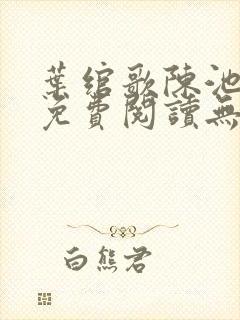 葉綰歌陳池
免費閱讀無
白熊君